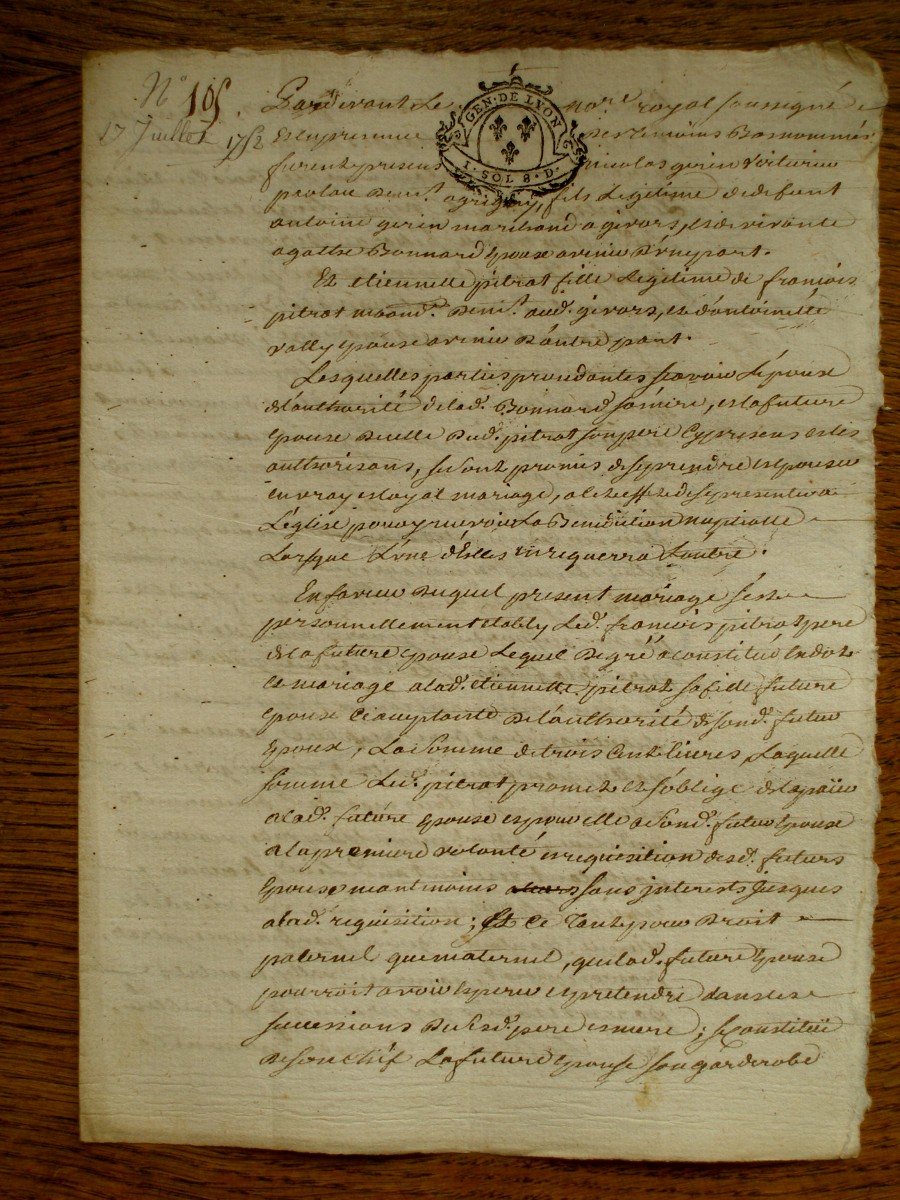 N° 105
17 Juillet 1752
GEN · DE LYON
1 · SOL 8 · D ·
Pardevant Le no.re royal soussigné
Et En presence des temoins Bas nommés
furent presens nicolas gerin voiturier
par eau dem.t a grigny, fils Legitime de defunt
antoine gerin marchand a givors, et de vivante
agathe Bonnard Epoux avenir d'une part.
Et etiennette pitrat fille Legitime de francois
pitrat march.d dem.t aud. givors, et d'antoinette
vally Epouse avenir d'autre part.
Lesquelles parties procedantes scavoir L'époux
de l'authorité de lad. Bonnard sa mere, et la future
Epouse de celle dud. pitrat son pere Cy presens et les
authorisans, se sont promis de se prendre et Epouser
en vray et loyal mariage, a cet effet de se presenter a
L'église pour y recevoir La Benediction nuptialle
Lorsque L'une d'Elles en requerra L'autre.
En faveur duquel present mariage s'est
personnellement etably Led. francois pitrat pere
de la future Epouse Lequel de gré a constitué en dot
Ce mariage a lad. etiennette pitrat sa fille future
Epouse Ci acceptante de l'authorité de sond. futur
Epoux, La Somme de trois Cent livres, Laquelle
somme Led. pitrat promet et s'oblige de la païer
a lad. future Epouse et pour elle a sond. futur Epoux
a la premiere volonté et requisition desd. futurs
Epoux neantmoins sans interests jusques
a lad. requisition; Et Ce Tant pour droit
paternel que maternel, que lad. future Epouse
pourroit avoir Esperer et pretendre dans les
successions de sesd. pere et mere; se Constituë
de son chef La future Epouse son garderobe